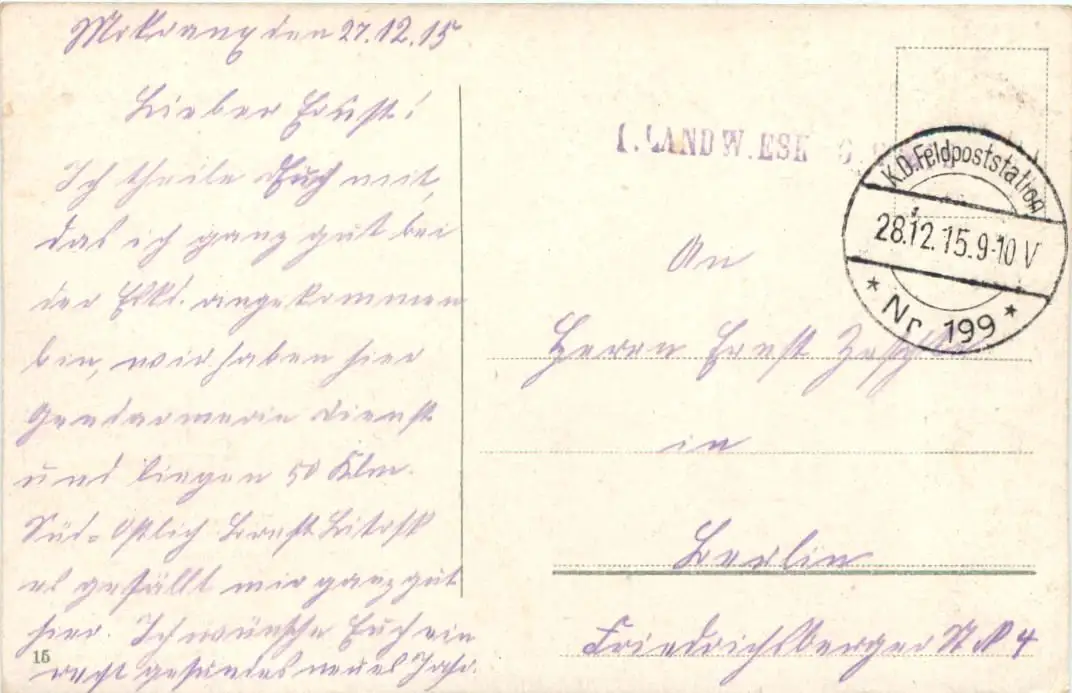 Mokrany den 27.12.15
Lieber Ernst!
Ich theile Euch mit,
das ich ganz gut bei
der Esk. angekommen
bin, wir haben hier
Gendarmerie dienst
und liegen 50 Klm.
Süd-Ostlich Brest Litofsk
es gefällt mir ganz gut
hier. Ich wünsche Euch ein
recht gesundes neues Jahr.
15
LANDW. ESK
K.D. Feldpoststation
28.12.15. 9-10 V
* Nr. 199 *
An
Herrn Ernst
in
Berlin
Friedrichsberger Str. 4